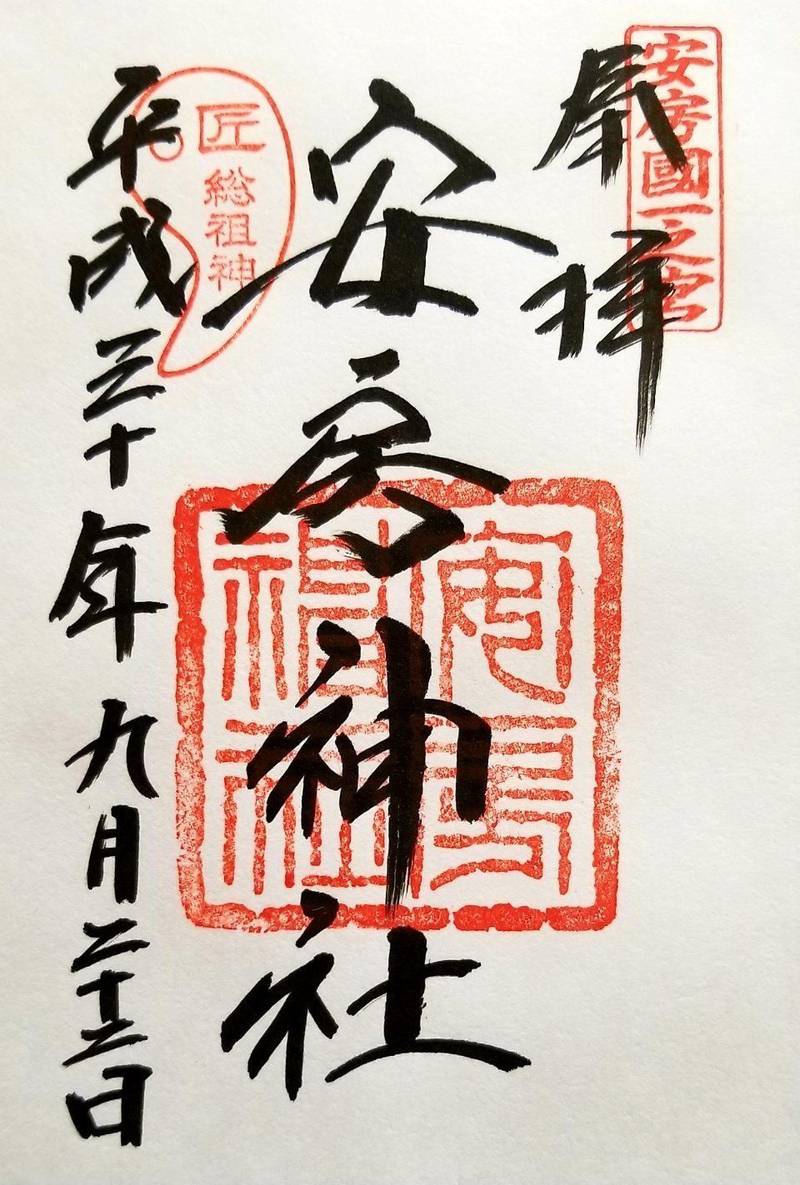 安房國一之宮
奉拝
安房神社
安房神社
匠総祖神
平成三十年九月二十三日